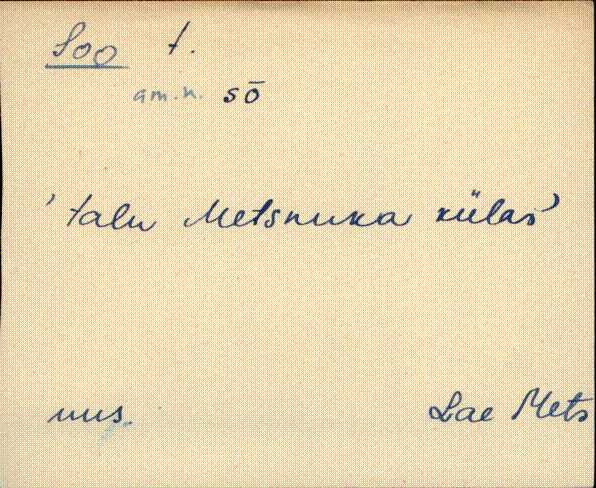 Soo t.
am.n. sō
'talu Metsnuka külas'
uus.
Lae Mets